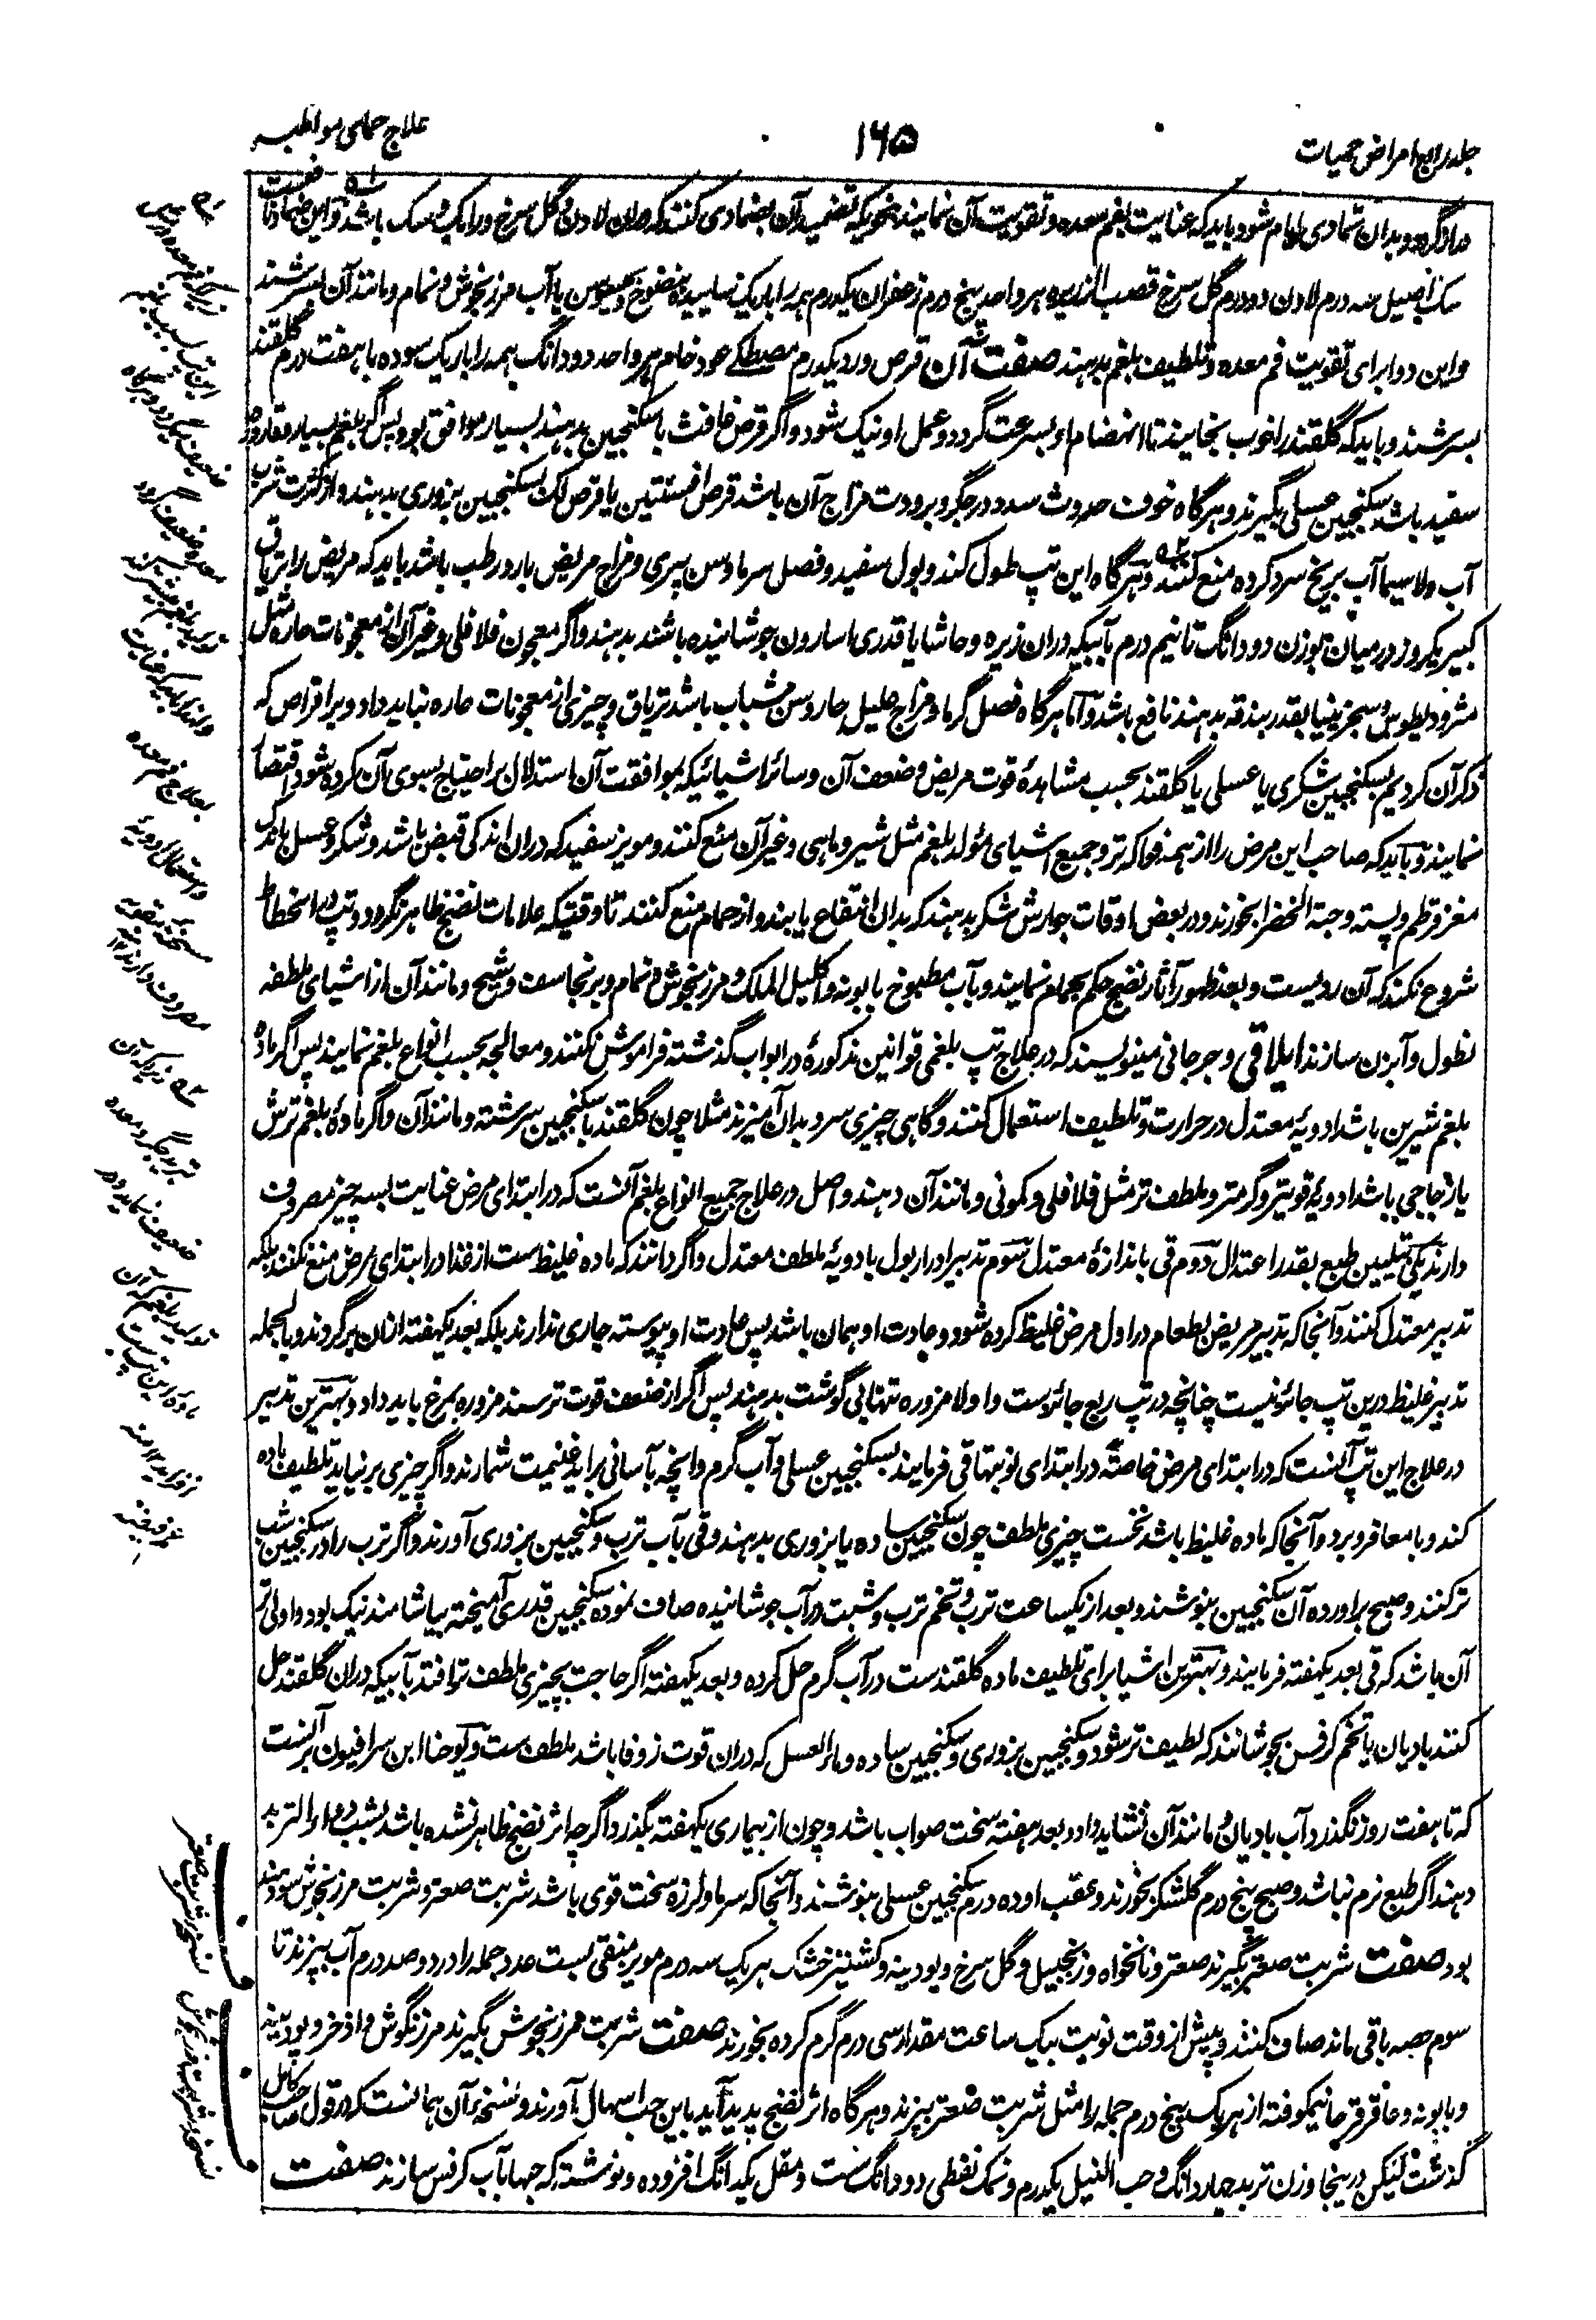 جلد رابع امراض حمیات
۱۶۵
علاج حمای مواظبہ
دراز گردد و بدان شمادی ایام شود باید کہ عنایت بفم معدہ و تقویت آن نمایند بنحویکہ تضمید آن بضمادی کنند کہ دران لادن و گل سرخ و رامک و سک باشد و این ضماد نافعست
سک اصیل سہ درم لادن دو درم گل سرخ قصب الذریرہ ہر واحد پنج درم زعفران یکدرم ہمہ را باریک ساییدہ بمیسوسن یا آب مرزنجوش و نمام و مانند آن بسرشند
و این دوا برای تقویت فم معدہ و تلطیف بلغم بدہند صفت آن قرص ورد یکدرم مصطکے عود خام ہر واحد دو دانگ ہمہ را باریک سودہ با ہفت درم گلقند
بسرشند و باید کہ گلقند را خوب بخایند تا انہضام او بسرعت گردد و عمل او نیک شود و اگر قرص غافث با سکنجبین بدہند بسیار موافق بود پس اگر بلغم بسیار و قارورہ
سفید باشد سکنجبین عسلی بگیرند و ہرگاہ خوف حدوث سدد در جگر و برودت مزاج آن باشد قرص افسنتین یا قرص لک بسکنجبین بزوری بدہند و از کثرت شرب
آب ولاسیما آب بریخ سرد کردہ منع کنند و ہرگاہ این تپ طول کند و بول سفید و فصل سرما و سن پیری و مزاج مریض بارد رطب باشد باید کہ مریض را تریاق
کبیر یکروز درمیان بوزن دو دانگ تا نیم درم بآبیکہ دران زیرہ و حاشا یا قدری اسارون جوشانیدہ باشند بدہند و اگر معجون فلافلی و غیر آن از معجونات حارہ مثل
مثرودیطوس و سجزینیا بقدر بندقہ بدہند نافع باشد و اما ہرگاہ فصل گرما و مزاج علیل حار و سن شباب باشد تریاق و چیزی از معجونات حارہ نباید داد و بر اقراص کہ
ذکر آن کردیم بسکنجبین شکری یا عسلی یا گلقند بحسب مشاہدۂ قوت مریض و ضعف آن و سائر اشیائیکہ بموافقت آن استدلال بر احتیاج بسوی آن کردہ شود اقتصار
نمایند و باید کہ صاحب این مرض را از ہمہ فواکہ تر و جمیع اشیای مؤلد بلغم مثل شیر و ماہی و غیر آن منع کنند و مویز سفید کہ دران اندکی قبض باشد و شکر و عسل باندک
مغز قرطم و پستہ و حبۃ الخضرا بخورند و در بعض اوقات جوارش شکر بدہند کہ بدان انتفاع یابند و از حمام منع کنند تا وقتیکہ علامات نضج ظاہر نگردد و تپ در انحطاط
شروع نکند کہ آن ردیست و بعد ظہور آثار نضج حکم بحمام نمایند و بآب مطبوخ بابونہ و اکلیل الملک و مرزنجوش و نمام و برنجاسف و شیح و مانند آن از اشیای ملطفہ
نطول و آبزن سازند ایلاقی و جرجانی مینویسند کہ در علاج تپ بلغمی قوانین مذکورۂ در ابواب گذشتہ فراموش نکنند و معالجہ بحسب انواع بلغم نمایند پس اگر مادۂ
بلغم شیرین باشد ادویۂ معتدل در حرارت و تلطیف استعمال کنند و گاہی چیزی سرد بدان آمیزند مثلا چون گلقند با سکنجبین سرشتہ و مانند آن و اگر مادۂ بلغم ترش
یا زجاجی باشد ادویۂ قویتر و گرمتر و ملطف تر مثل فلافلی و کمونی و مانند آن دہند و اصل در علاج جمیع انواع بلغم آنست کہ در ابتدای مرض عنایت بسہ چیز مصروف
دارند یکی تلیین طبع بقدر اعتدال دوم قی باندازۂ معتدل سوم تدبیر ادرار بول بادویۂ ملطف معتدل و اگر دانند کہ مادہ غلیظ ست از غذا در ابتدای مرض منع نکنند بلکہ
تدبیر معتدل کنند و آنجا کہ تدبیر مریض بطعام در اول مرض غلیظ کردہ شود و عادت او ہمان باشد پس عادت او پیوستہ جاری ندارند بلکہ بعد یکہفتہ ازان برگردند و بالجملہ
تدبیر غلیظ درین تپ جائز نیست چنانچہ در تپ ربع جائز ست و اولا مزورہ تنہا بی گوشت بدہند پس اگر از ضعف قوت ترسند مزورہ بمرغ باید داد و بہترین تدبیر
در علاج این تپ آنست کہ در ابتدای مرض خاصۃ در ابتدای نوبتہا قی فرمایند بسکنجبین عسلی و آب گرم و انچہ بآسانی براید غنیمت شمارند و اگر چیزی برنیاید تلطیف مادہ
کند و بامعا فرو برد و آنجا کہ مادہ غلیظ باشد نخست چیزی ملطف چون سکنجبین سادہ یا بزوری بدہند و قی بآب ترب و سکنجبین بزوری آورند و اگر ترب را در سکنجبین شب
تر کنند و صبح براوردہ آن سکنجبین بنوشند و بعد از یکساعت ترب و تخم ترب و شبت در آب جوشانیدہ صاف نمودہ سکنجبین قدری آمیختہ بیاشامند نیک بود و اولی تر
آن باشد کہ قی بعد یکہفتہ فرمایند و بہترین اشیا برای تلطیف مادہ گلقند ست در آب گرم حل کردہ و بعد یکہفتہ اگر حاجت بچیزی ملطف تر افتد بآبیکہ دران گلقند حل
کنند بادیان یا تخم کرفس بجوشانند کہ لطیف تر شود و سکنجبین بزوری و سکنجبین سادہ و ماء العسل کہ دران قوت زوفا باشد ملطف ست و یوحنا ابن سرافیون بر آنست
کہ تا ہفت روز نگذرد آب بادیان و مانند آن نشاید داد و بعد ہفتہ سخت صواب باشد و چون از بیماری یکہفتہ بگذرد اگرچہ اثر نضج ظاہر نشدہ باشد بشب دواء التربد
دہند اگر طبع نرم نباشد و صبح پنج درم گلشکر بخورند و عقب او دہ درم سکنجبین عسلی بنوشند و آنجا کہ سرما و لرزہ سخت قوی باشد شربت صعتر و شربت مرزنجوش سودمند
بود صفت شربت صعتر بگیرند صعتر و نانخواہ و زنجبیل و گل سرخ و پودینہ و کشنیز خشک ہر یک سہ درم مویز منقی بست عدد جملہ را در دو صد درم آب بپزند تا
سوم حصہ باقی ماند صاف کنند و پیش از وقت نوبت بیک ساعت مقدار سی درم گرم کردہ بخورند صفت شربت مرزنجوش بگیرند مرزنگوش و اذخر و پودینہ
و بابونہ و عاقرقرحا نیمکوفتہ از ہر یک پنج درم جملہ را مثل شربت صعتر بپزند و ہرگاہ اثر نضج پدید آید باین حب اسہال آورند و نسخہ آن ہمانست کہ در قول صاحب کامل
گذشت لیکن درینجا وزن تربد چہار دانگ و حب النیل یکدرم و نمک نفطی دو دانگ ست و مقل یکدانگ افزودہ و نوشتہ کہ حبہا بآب کرفس سازند صفت
نسخہ شربت صعتر
نسخہ شربت مرزنجوش